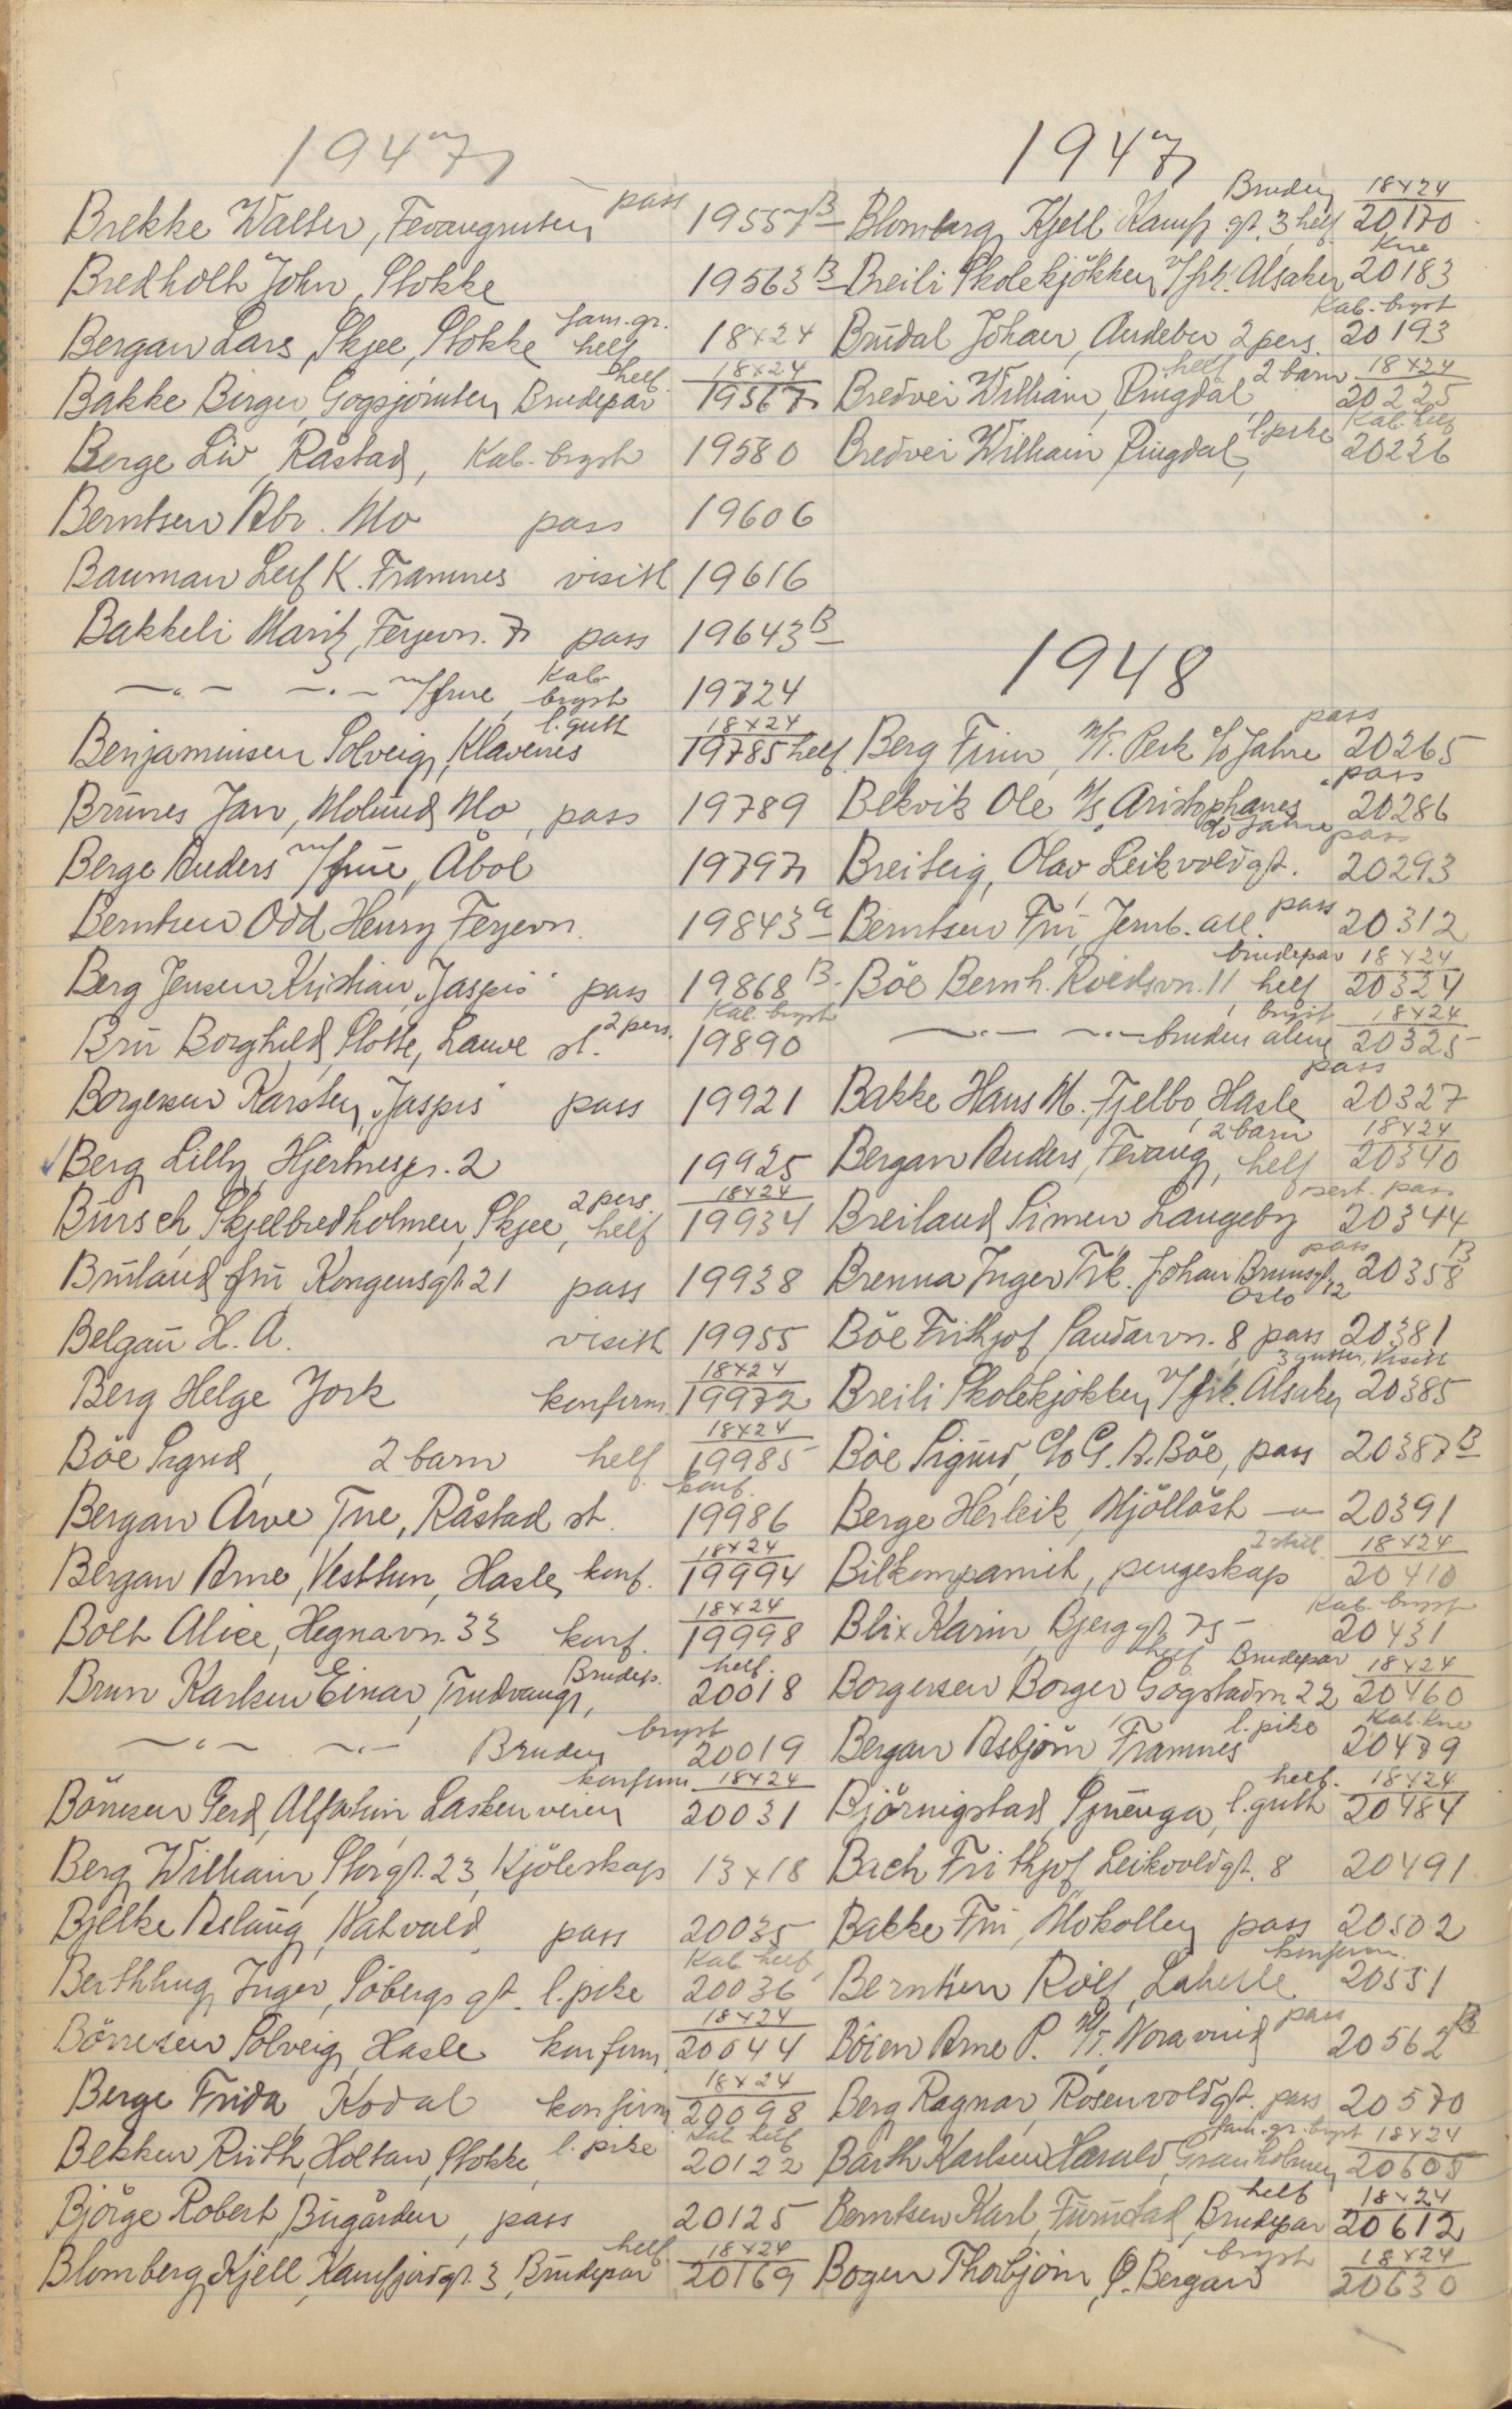 1947
Brekke Walter, Fevangruten pass 19557 B
Bredholt John, Stokke 19563 B
Bergan Lars, Skjee, Stokke fam.gr. helf 18x24
Bakke Birger, Gogsjøruten, Brudepar helf. 18x24 19567
Berge Liv, Råstad, Kab. bryst 19580
Berntsen Abr. Mo pass 19606
Bauman Leif K. Framnes visitt 19616
Bakkeli Marit, Ferjevn. 7 pass 19643 B
—"— —"— m/frue, Kab bryst 19724
Benjaminsen Solveig, Klavenes l. gutt 18x24 19785 helf
Brunes Jan, Molund, Mo, pass 19789
Berge Anders m/frue, Åbol 19797
Berntsen Odd Henry Ferjevn. 19843 a
Berg Jensen Kristian, "Jaspis" pass 19868 B
Bru Borghild, Slotte, Lauve st. 2 pers. Kab. bryst 19890
Borgersen Karsten, "Jaspis" pass 19921
Berg Lilly, Hjertnesgr. 2 19925
Bursch, Skjelbredholmen, Skjee, 2 pers. helf 18x24 19934
Bruland fru Kongensgt. 21 pass 19938
Belgau H. A. visitt 19955
Berg Helge York konfirm. 18x24 19972
Böe Sigrid, 2 barn helf 18x24 19985
Bergan Arve Tne, Råstad st. konf. 19986
Bergan Arne, Vesttun, Hasle, konf. 18x24 19994
Bolt Alice, Hegnavn. 33 konf. 18x24 19998
Brun Karlsen Einar, Trudvangr, Brudep. helf. 20018
—"— —"— Bruden bryst 20019
Börresen Gerd, Alfheim Laskenveien konfirm. 18x24 20031
Berg William, Storgt. 23, Kjöleskap 13x18
Bjelke Aslaug, Natvald, pass 20035
Berthling Inger, Söbergs gt. l. pike Kab. helf 20036
Börresen Solveig, Hasle konfirm 18x24 20044
Berge Frida, Kodal konfirm 18x24 20098
Bekken Ruth, Holtan, Stokke, l. pike Kab. helf 20122
Bjørge Robert, Bugården, pass 20125
Blomberg Kjell, Kamfjordgt. 3, Brudepar helf. 18x24 20169
1947
Blomberg Kjell Kamfj. gt. 3 Bruden helf 18x24 20170
Breili Skolekjøkken v/frk. Alsaker Kne 20183
Brudal Johan, Andebu 2 pers. Kab. bryst 20193
Bredvei William, Ringdal, helf 2 barn 18x24 20225
Bredvei William Ringdal, l. pike Kab. helf 20226
1948
Berg Finn, M/T. Perk c/o Jahre pass 20265
Bekvik Ole M/S Aristophanes c/o Jahre pass 20286
Breiteig, Olav Leikvoldgt. pass 20293
Berntsen Fru, Jernb. all. pass 20312
Böe Bernh. Roedsvn. 11 brudepar helf 18x24 20324
—"— —"— bruden alene bryst 18x24 20325
Bakke Hans M. Fjelbo, Hasle pass 20327
Bergan Anders, Fevang, 2 barn helf 18x24 20340
Breiland, Simen Langeby sert. pass 20344
Brenna Inger Frk. Johan Brunsgt. 12 Oslo pass 20358 B
Böe Frithjof, Sandarvn. 8 pass 20381
Breili Skolekjøkken, v/frk. Alsaker 3 gutter, Visitt 20385
Böe Sigurd, c/o G. A. Böe, pass 20387 B
Berge Herleik, Mjöllöst —"— 20391
Bilkompaniet, pengeskap 2 stil. 18x24 20410
Blix Karin, Bjerggt. 75 Kab. bryst 20431
Borgersen Borger Gogstadvn. 22 helf Brudepar 18x24 20460
Bergan Asbjørn Framnes l. pike Kab. Kne 20479
Björnigstad, Sprenga, l. gutt helf. 18x24 20484
Bach Frithjof, Leikvoldgt. 8 20491
Bakke Fru, Mokollen pass 20502
Berntsen Rolf, Lahelle konfirm. 20551
Böien Arne P. M/T. Noravind pass 20562 B
Berg Ragnar, Rosenvoldgt. pass 20570
Barth Karlsen Harald, Granholmen fam. gr. bryst 18x24 20605
Berntsen Karl, Furustad, Brudepar helf 18x24 20612
Bogen Thorbjørn, Ø. Bergan bryst 18x24 20630